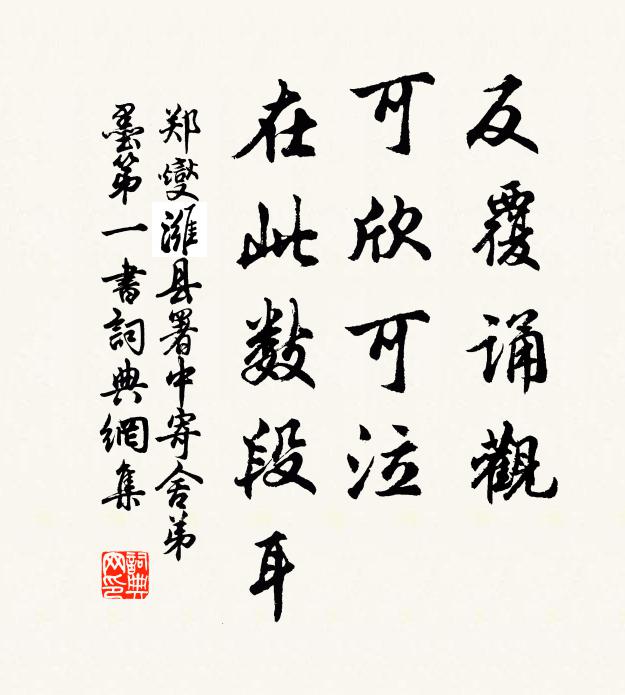 反覆诵觀
可欣可泣
在此数段耳
郑燮潍县署中寄舍弟
墨第一書詞典網集
詞典
网印